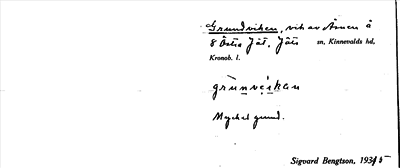 Grundviken, vik av Åsnen å
8 Östra Jät, Jäts sn, Kinnevalds hd,
Kronob. l.
grùnvèiken
Mycket grund.
Sigvard Bengtson, 1935